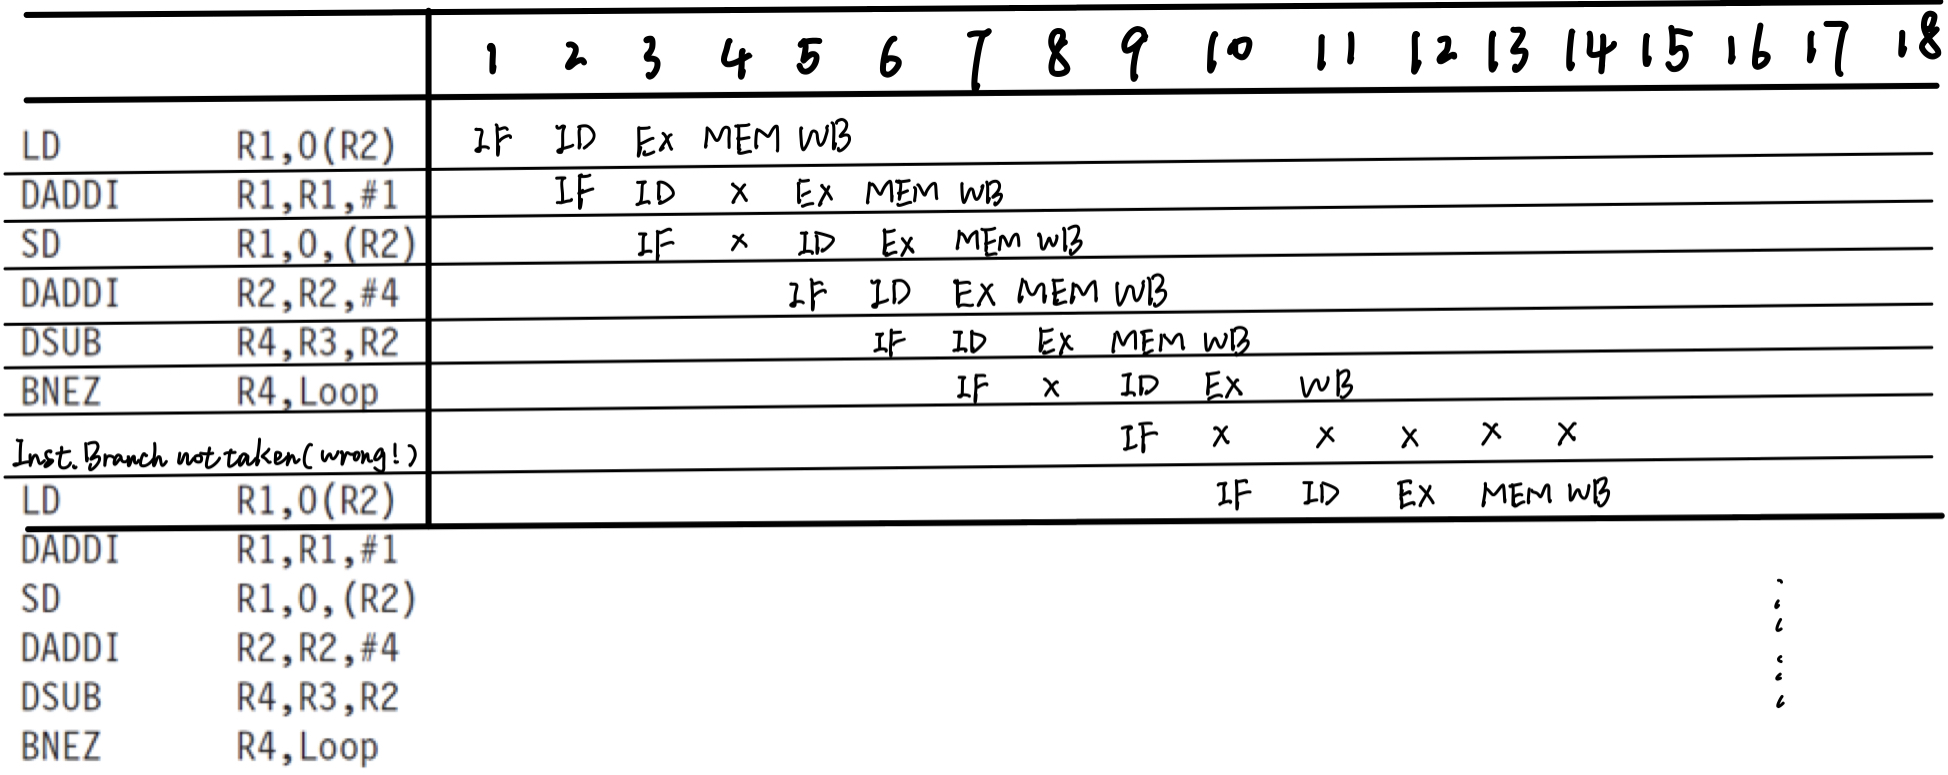 1 2 3 4 5 6 7 8 9 10 11 12 13 14 15 16 17 18
LD R1,0(R2) IF ID EX MEM WB
DADDI R1,R1,#1 IF ID x EX MEM WB
SD R1,0,(R2) IF x ID EX MEM WB
DADDI R2,R2,#4 IF ID EX MEM WB
DSUB R4,R3,R2 IF ID EX MEM WB
BNEZ R4,Loop IF x ID EX WB
Inst. Branch not taken (wrong!) IF x x x x x
LD R1,0(R2) IF ID EX MEM WB
DADDI R1,R1,#1
SD R1,0,(R2)
DADDI R2,R2,#4
DSUB R4,R3,R2
BNEZ R4,Loop